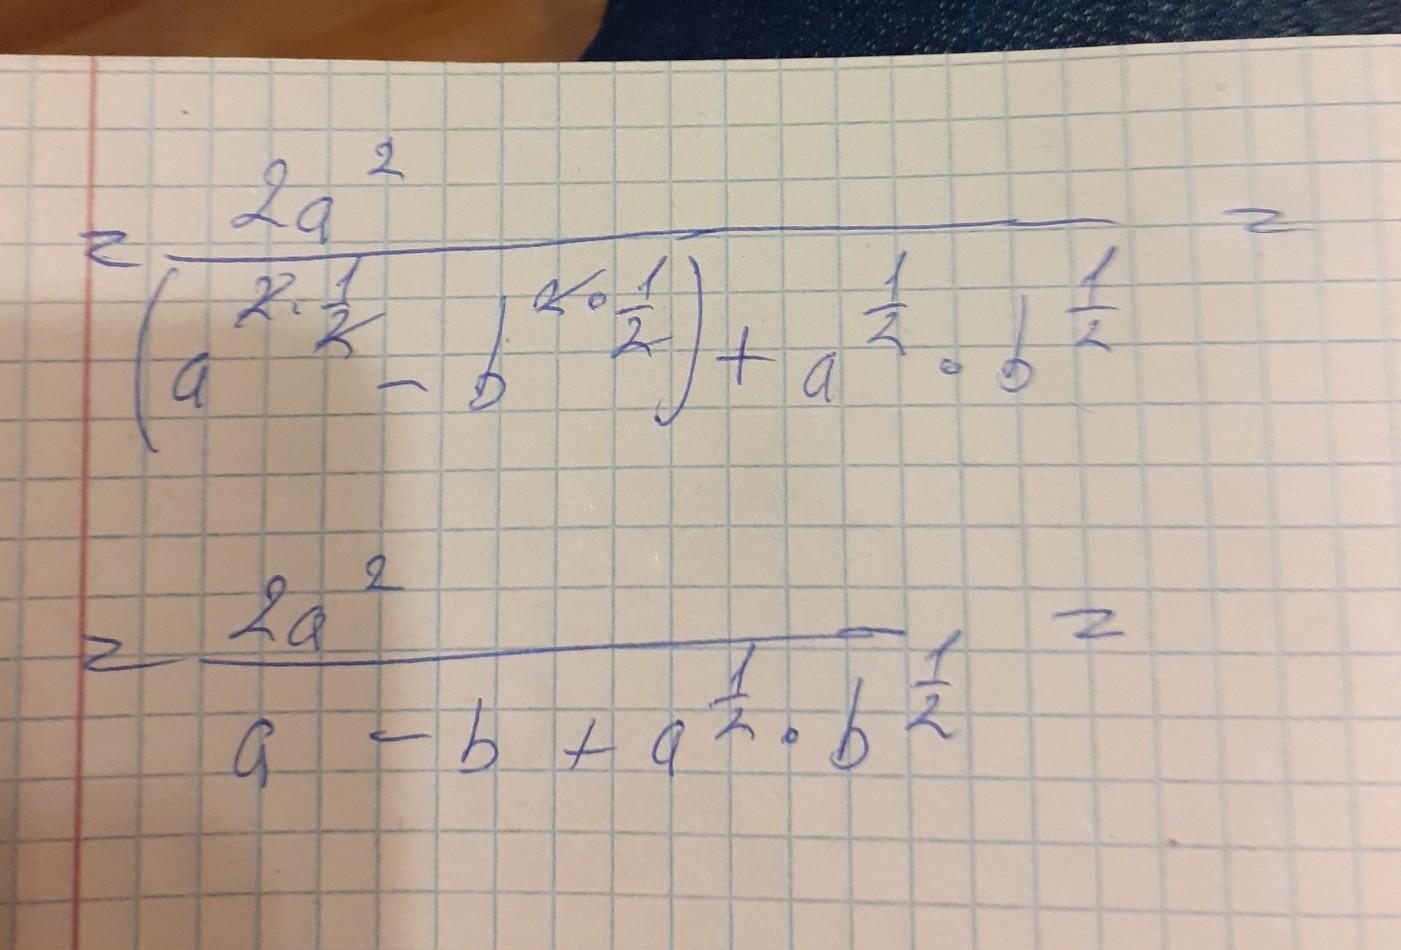 = 2a² / (a^(2·1/2) - b^(2·1/2)) + a^(1/2) · b^(1/2) =
= 2a² / a - b + a^(1/2) · b^(1/2) =